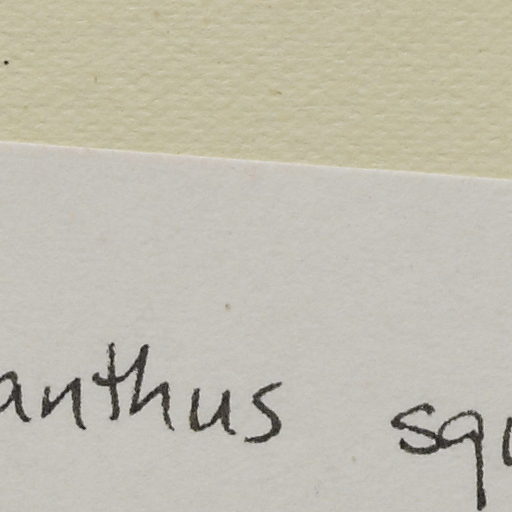 anthus squ